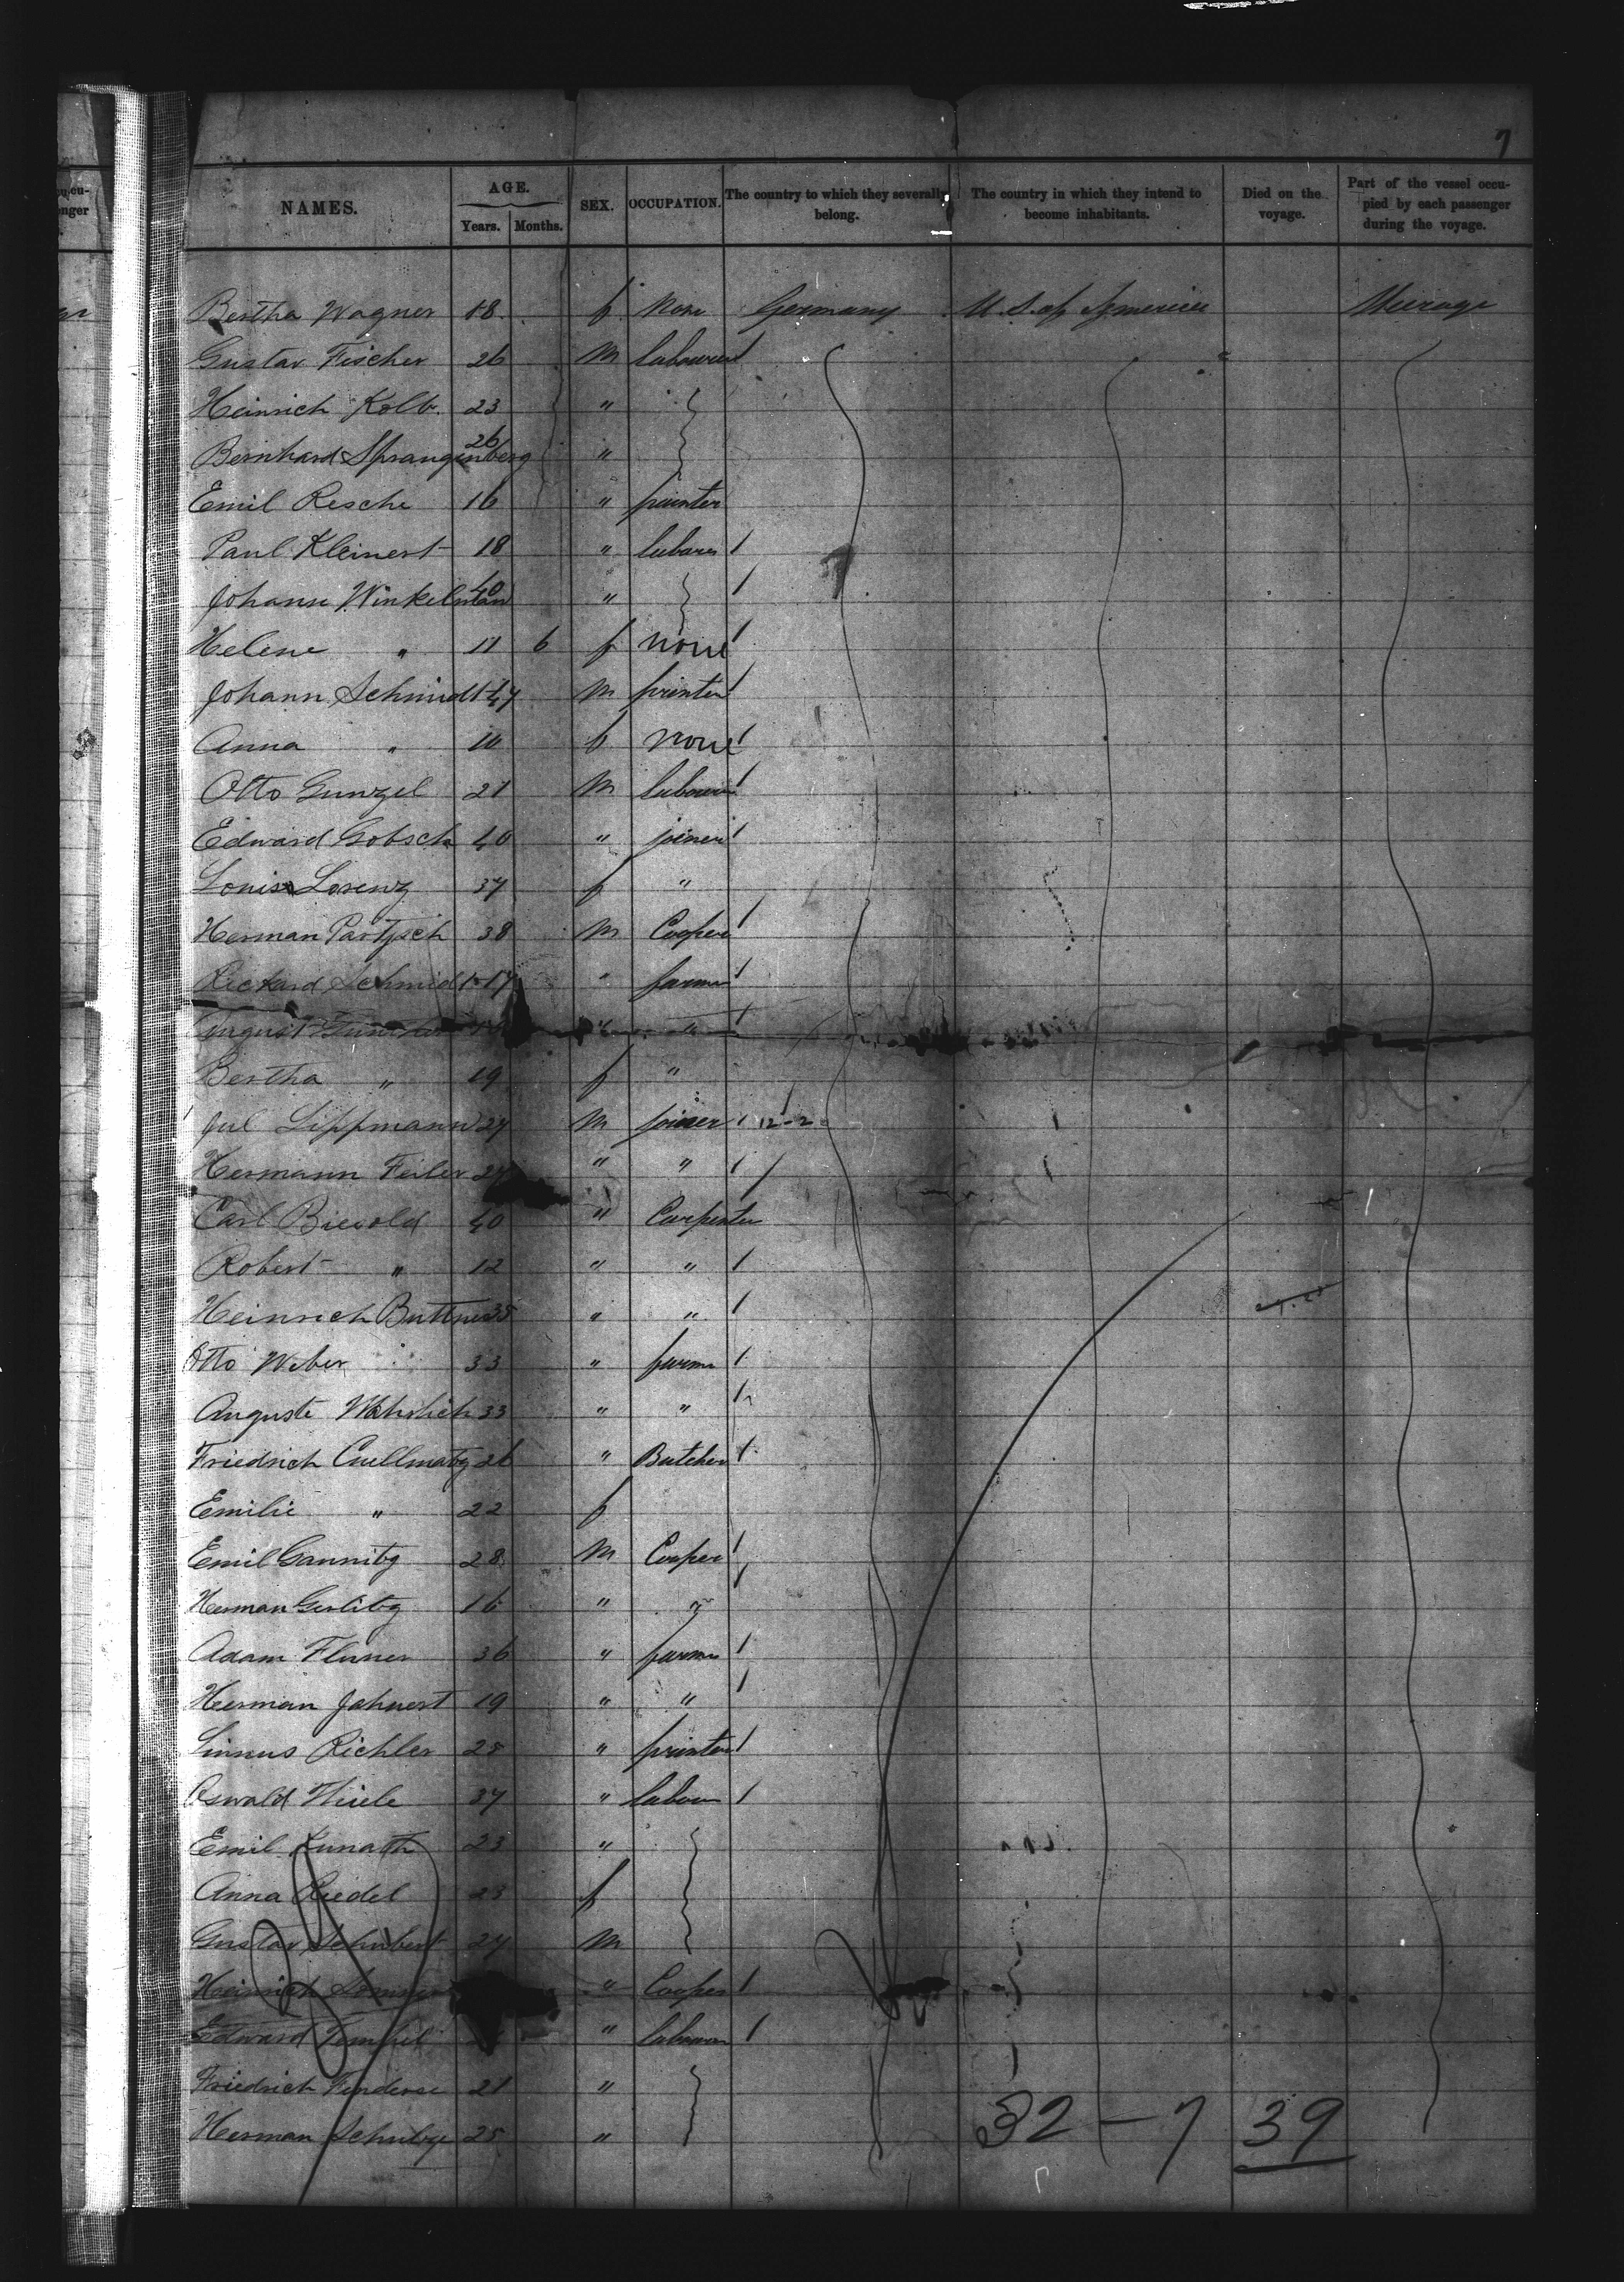 7
NAMES. AGE. Years. Months. SEX. OCCUPATION. The country to which they severally belong. The country in which they intend to become inhabitants. Died on the voyage. Part of the vessel occupied by each passenger during the voyage.
Bertha Wagner 18 f None Germany U.S. of America Steerage
Gustav Fischer 26 M labourer
Heinrich Kolb 23 "
Bernhard Sprangenberg 26 "
Emil Resche 16 " painter
Paul Kleinert 18 " labourer
Johann Winkelman 40 "
Helene " 11 6 f none
Johann Schmidt 47 M printer
Anna " 10 f none
Otto Gunzel 21 M labourer
Edward Gobsch 40 " joiner
Louise Lorenz 37 f "
Herman Partzsch 38 M Cooper
Rickard Schmidt 17 " farmer
August " "
Bertha " 19 f "
Jul Lippmann 27 M joiner 12-2
Hermann Feiler 27 " "
Carl Biesold 40 " Carpenter
Robert " 12 " "
Heinrich Buttner 35 " "
Otto Weber 33 " farmer
Auguste 33 " "
Friedrich 26 " Butcher
Emilie " 22 f
Emil Cannitz 28 M Cooper
Herman Gerlitz 16 " "
Adam 36 " farmer
Herman Jahnert 19 " "
Linnus Richler 28 " printer
Oswald Thiele 37 " labour
Emil Kunath 23 "
Anna Riedel 23 f
Gustav Schubert 27 M
Heinrich " Cooper
Edward " labourer
Friedrich 21 "
Herman Schulze 25 "
32 - 7 39